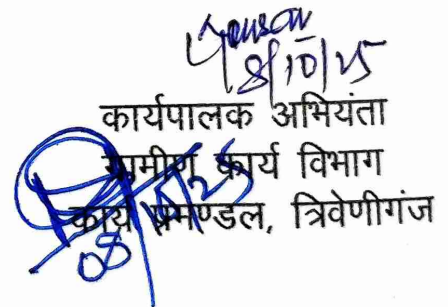 8/10/25
कार्यपालक अभियंता
ग्रामीण कार्य विभाग
कार्य प्रमण्डल, त्रिवेणीगंज
08/10/25